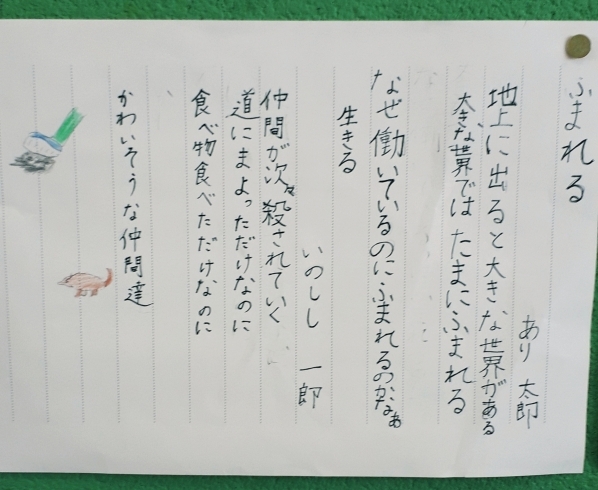 ふまれる
あり 太郎
地上に出ると大きな世界がある
大きな世界では たまにふまれる
なぜ働いているのにふまれるのかなぁ
生きる
いのしし 一郎
仲間が次々殺されていく
道にまよっただけなのに
食べ物食べただけなのに
かわいそうな仲間達